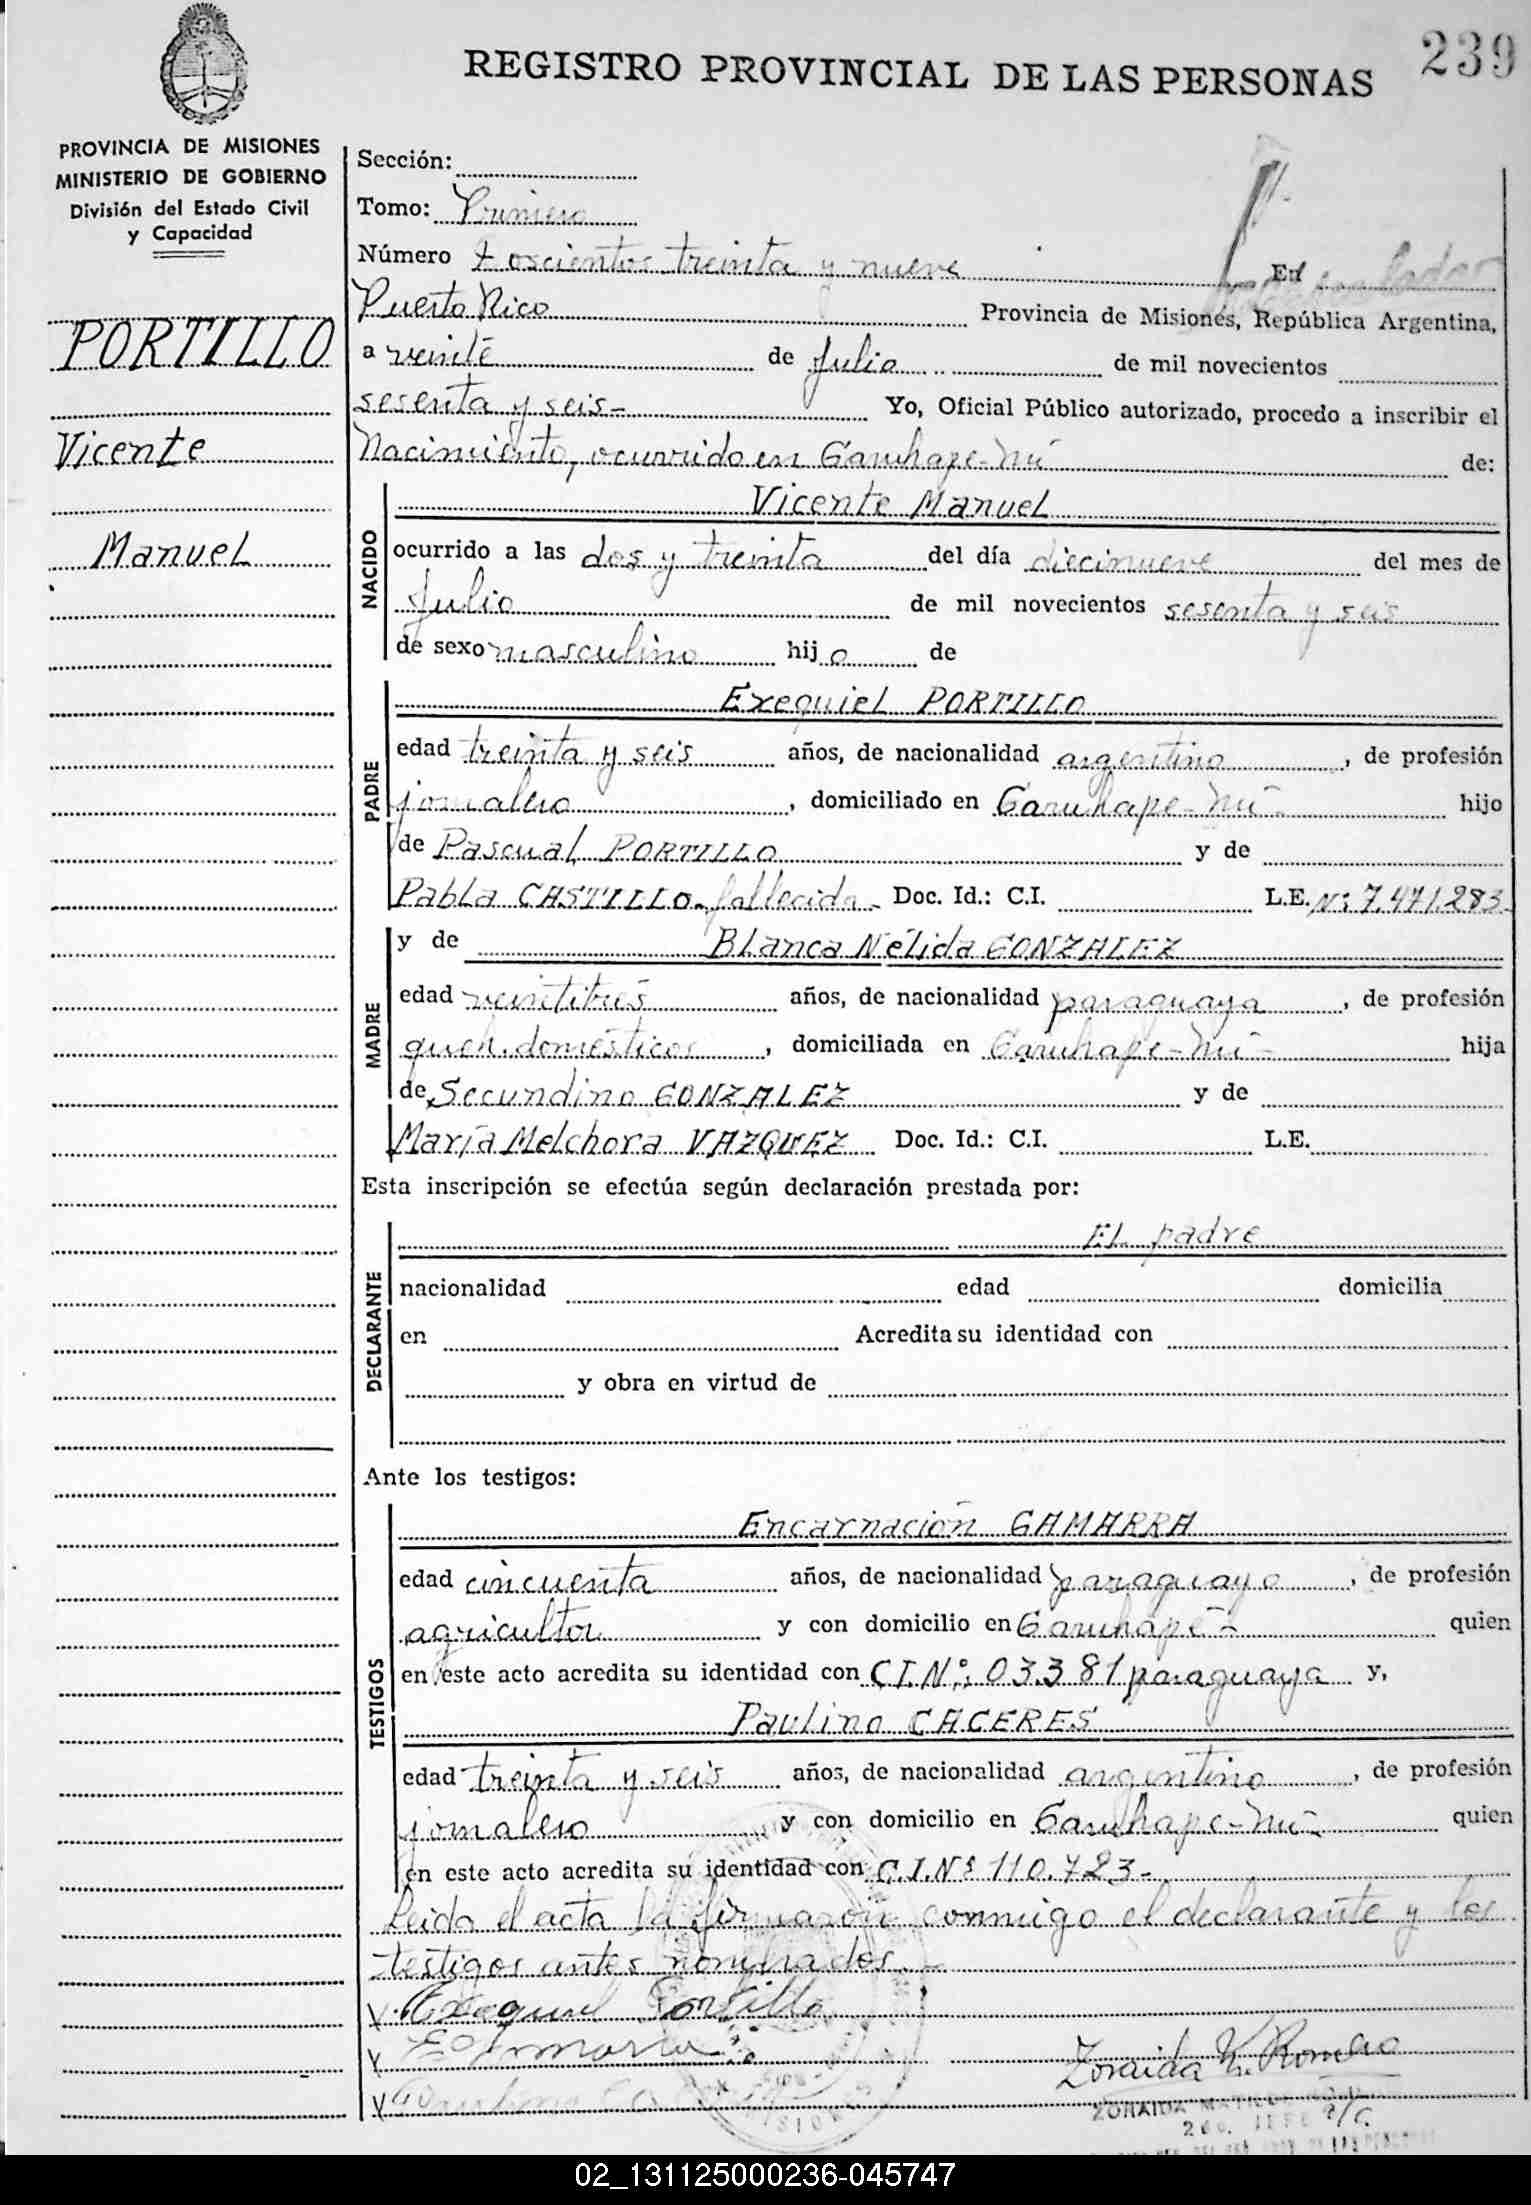 239
REGISTRO PROVINCIAL DE LAS PERSONAS
PROVINCIA DE MISIONES
MINISTERIO DE GOBIERNO
División del Estado Civil
y Capacidad
PORTILLO
Vicente
Manuel
Sección:
Tomo: Primero
Número Doscientos treinta y nueve En
Puerto Rico Provincia de Misiones, República Argentina,
a veinte de Julio de mil novecientos
sesenta y seis- Yo, Oficial Público autorizado, procedo a inscribir el
Nacimiento, ocurrido en Garuhape-mí de:
NACIDO
Vicente Manuel
ocurrido a las dos y treinta del día diecinueve del mes de
Julio de mil novecientos sesenta y seis
de sexo masculino hijo de
PADRE
Exequiel PORTILLO
edad treinta y seis años, de nacionalidad argentino, de profesión
jornalero, domiciliado en Garuhape-mí- hijo
de Pascual PORTILLO y de
Pabla CASTILLO-fallecida- Doc. Id.: C.I. L.E. Nº: 7.471.283-
MADRE
y de Blanca Nélida GONZALEZ
edad veintitrés años, de nacionalidad paraguaya, de profesión
queh. domésticos, domiciliada en Garuhape-mí- hija
de Secundino GONZALEZ y de
María Melchora VAZQUEZ Doc. Id.: C.I. L.E.
Esta inscripción se efectúa según declaración prestada por:
DECLARANTE
El padre
nacionalidad edad domicilia
en Acredita su identidad con
y obra en virtud de
Ante los testigos:
TESTIGOS
Encarnación GAMARRA
edad cincuenta años, de nacionalidad paraguayo, de profesión
agricultor y con domicilio en Garuhapé- quien
en este acto acredita su identidad con C.I.Nº: 03.381 paraguaya y,
Paulino CACERES
edad treinta y seis años, de nacionalidad argentino, de profesión
jornalero y con domicilio en Garuhape-mí- quien
en este acto acredita su identidad con C.I.Nº 110.723-
Leida el acta la firmaron conmigo el declarante y los
testigos antes nombrados.-
Exequiel Portillo
Zoraida M. Romero
ZORAIDA
02_131125000236-045747